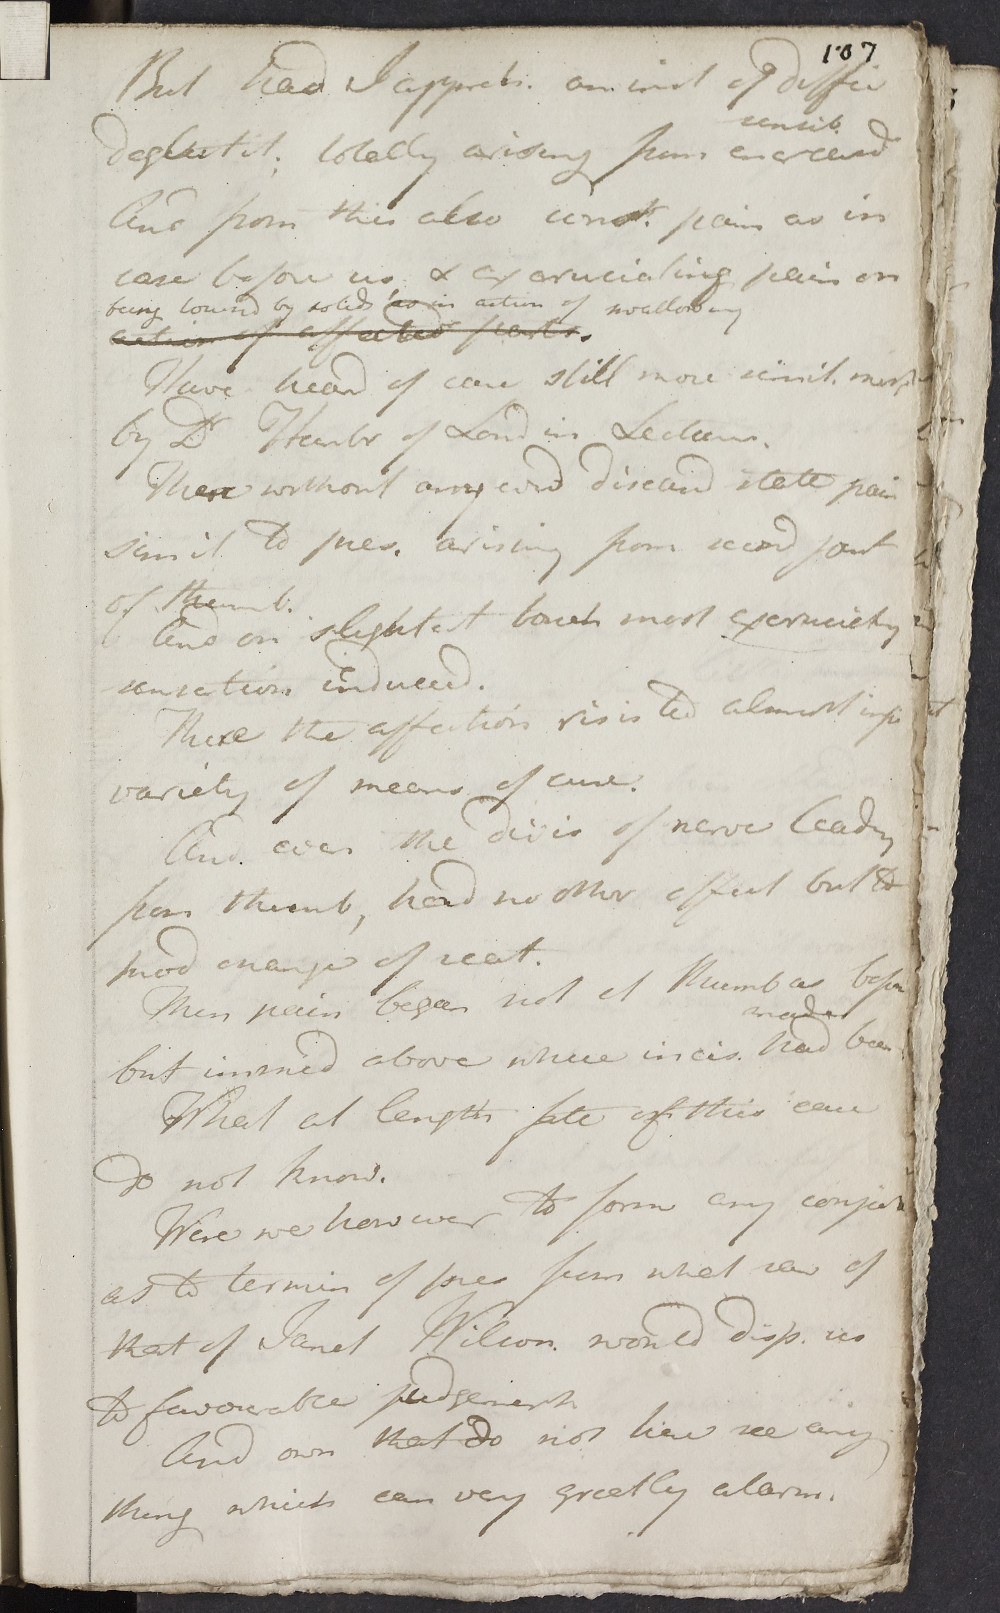 107
But had I appreh. an inst of diffic
sensib.
deglutit. totally arising from encreased
And from this also const. pain as in
case before us, & excruciating pain on
being touched by solids as in action of swallowing
action of affected parts.
Have heard of case still more simil.
by Dr Hunter of Lond in Lectures.
There without any evid diseased state pain
simil. to pres. arising from second joint
of thumb.
And on slightest touch most excruciating
sensation induced.
There the affection resisted almost
variety of means of cure.
And even the divis of nerve leading
from thumb, had no other effect but to
prod change of seat.
Then pain began not at thumb as before
made
but immed above where incis. had been
What at length fate of this case
do not know.
Were we however to form any conject
as to termin of pres from what saw of
that of Janet Wilson. would disp. us
to favourable judgement
And own that do not here see any
thing which can very greatly alarm.